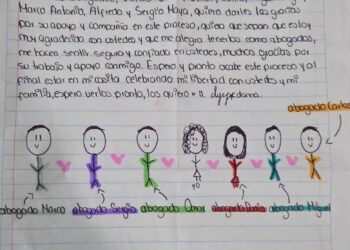 Marco Antonio, Alfredo y Sergio Maya, quiero darles las gracias
por su apoyo y compañia en este proceso, quiero que sepan que estoy
muy agradecida con ustedes y que me alegro tenerlos como abogados,
me hacen sentir segura y confiada en ustedes, muchas gracias por
su trabajo y apoyo conmigo. Espero y pronto acabe este proceso y al
final estar en mi casita celebrando mi libertad con ustedes y mi
familia, espero verlos pronto, los quiero
abogado Carlos
abogado Marco abogado Sergio abogado Omar abogada Paola abogado Miguel